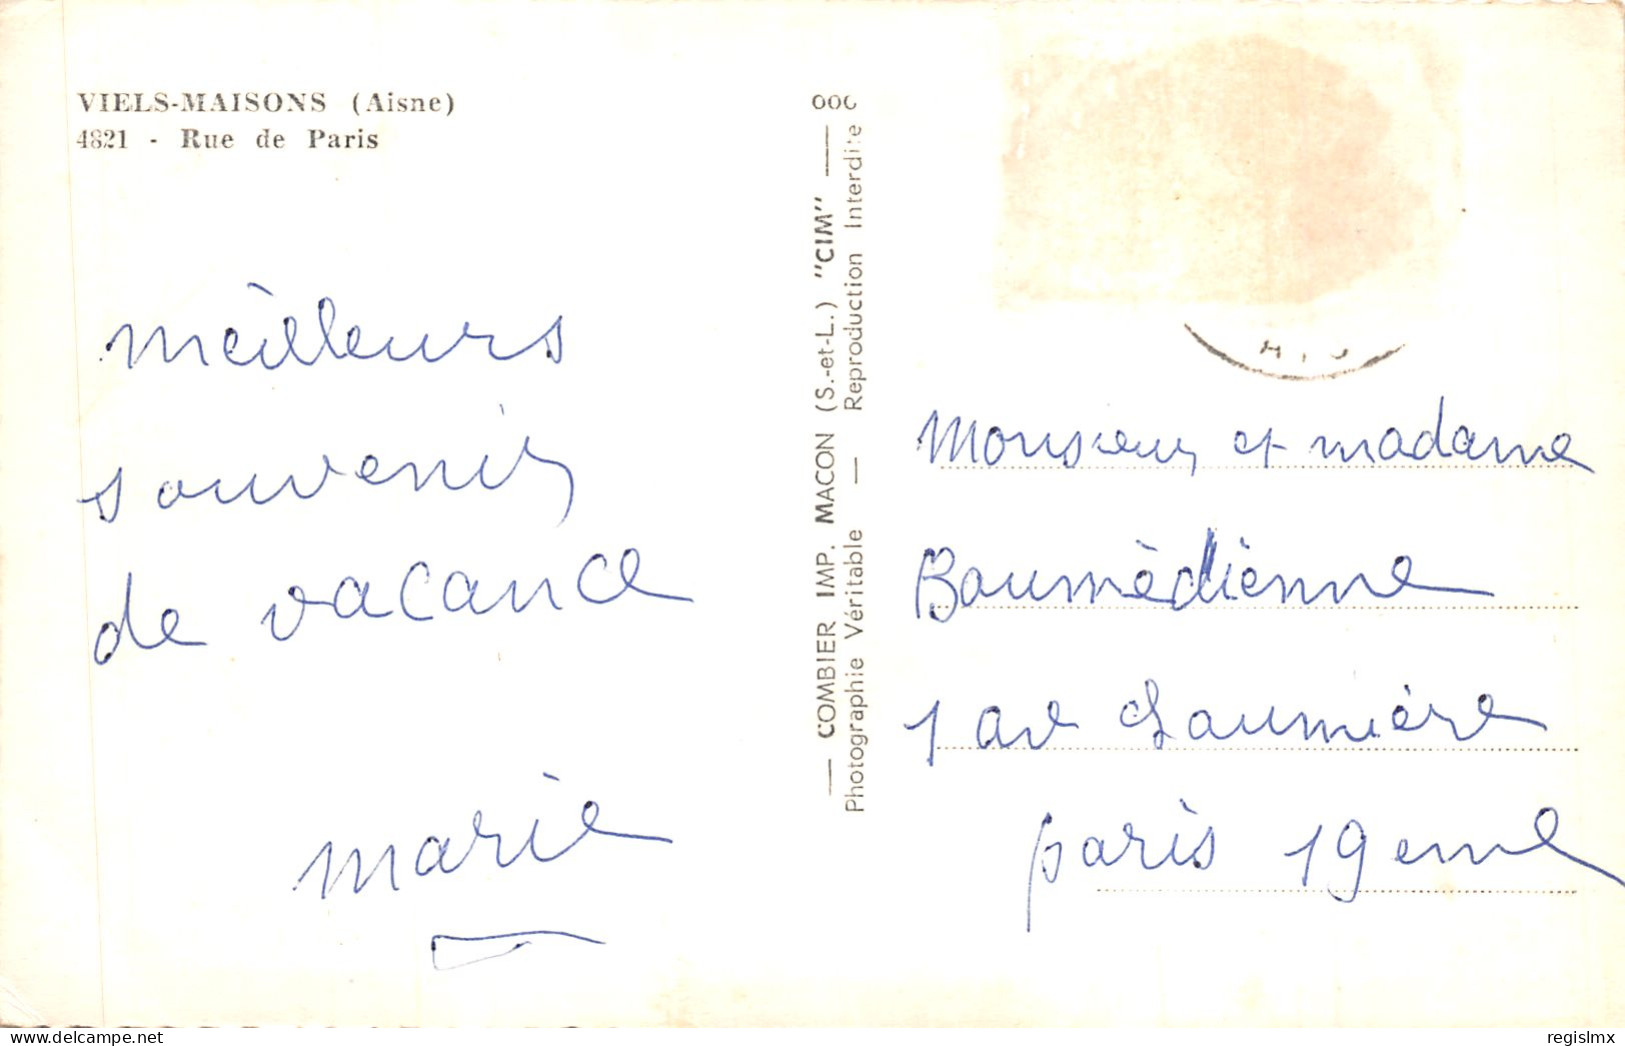 VIELS-MAISONS (Aisne)
4821 - Rue de Paris
meilleurs
souvenir
de vacance
marie
— COMBIER IMP. MACON (S.-et-L.) "CIM" —
Photographie Véritable — Reproduction Interdite
Monsieur et madame
Boumèdienne
1 av Laumière
paris 19 eme
delcampe.net
regislmx